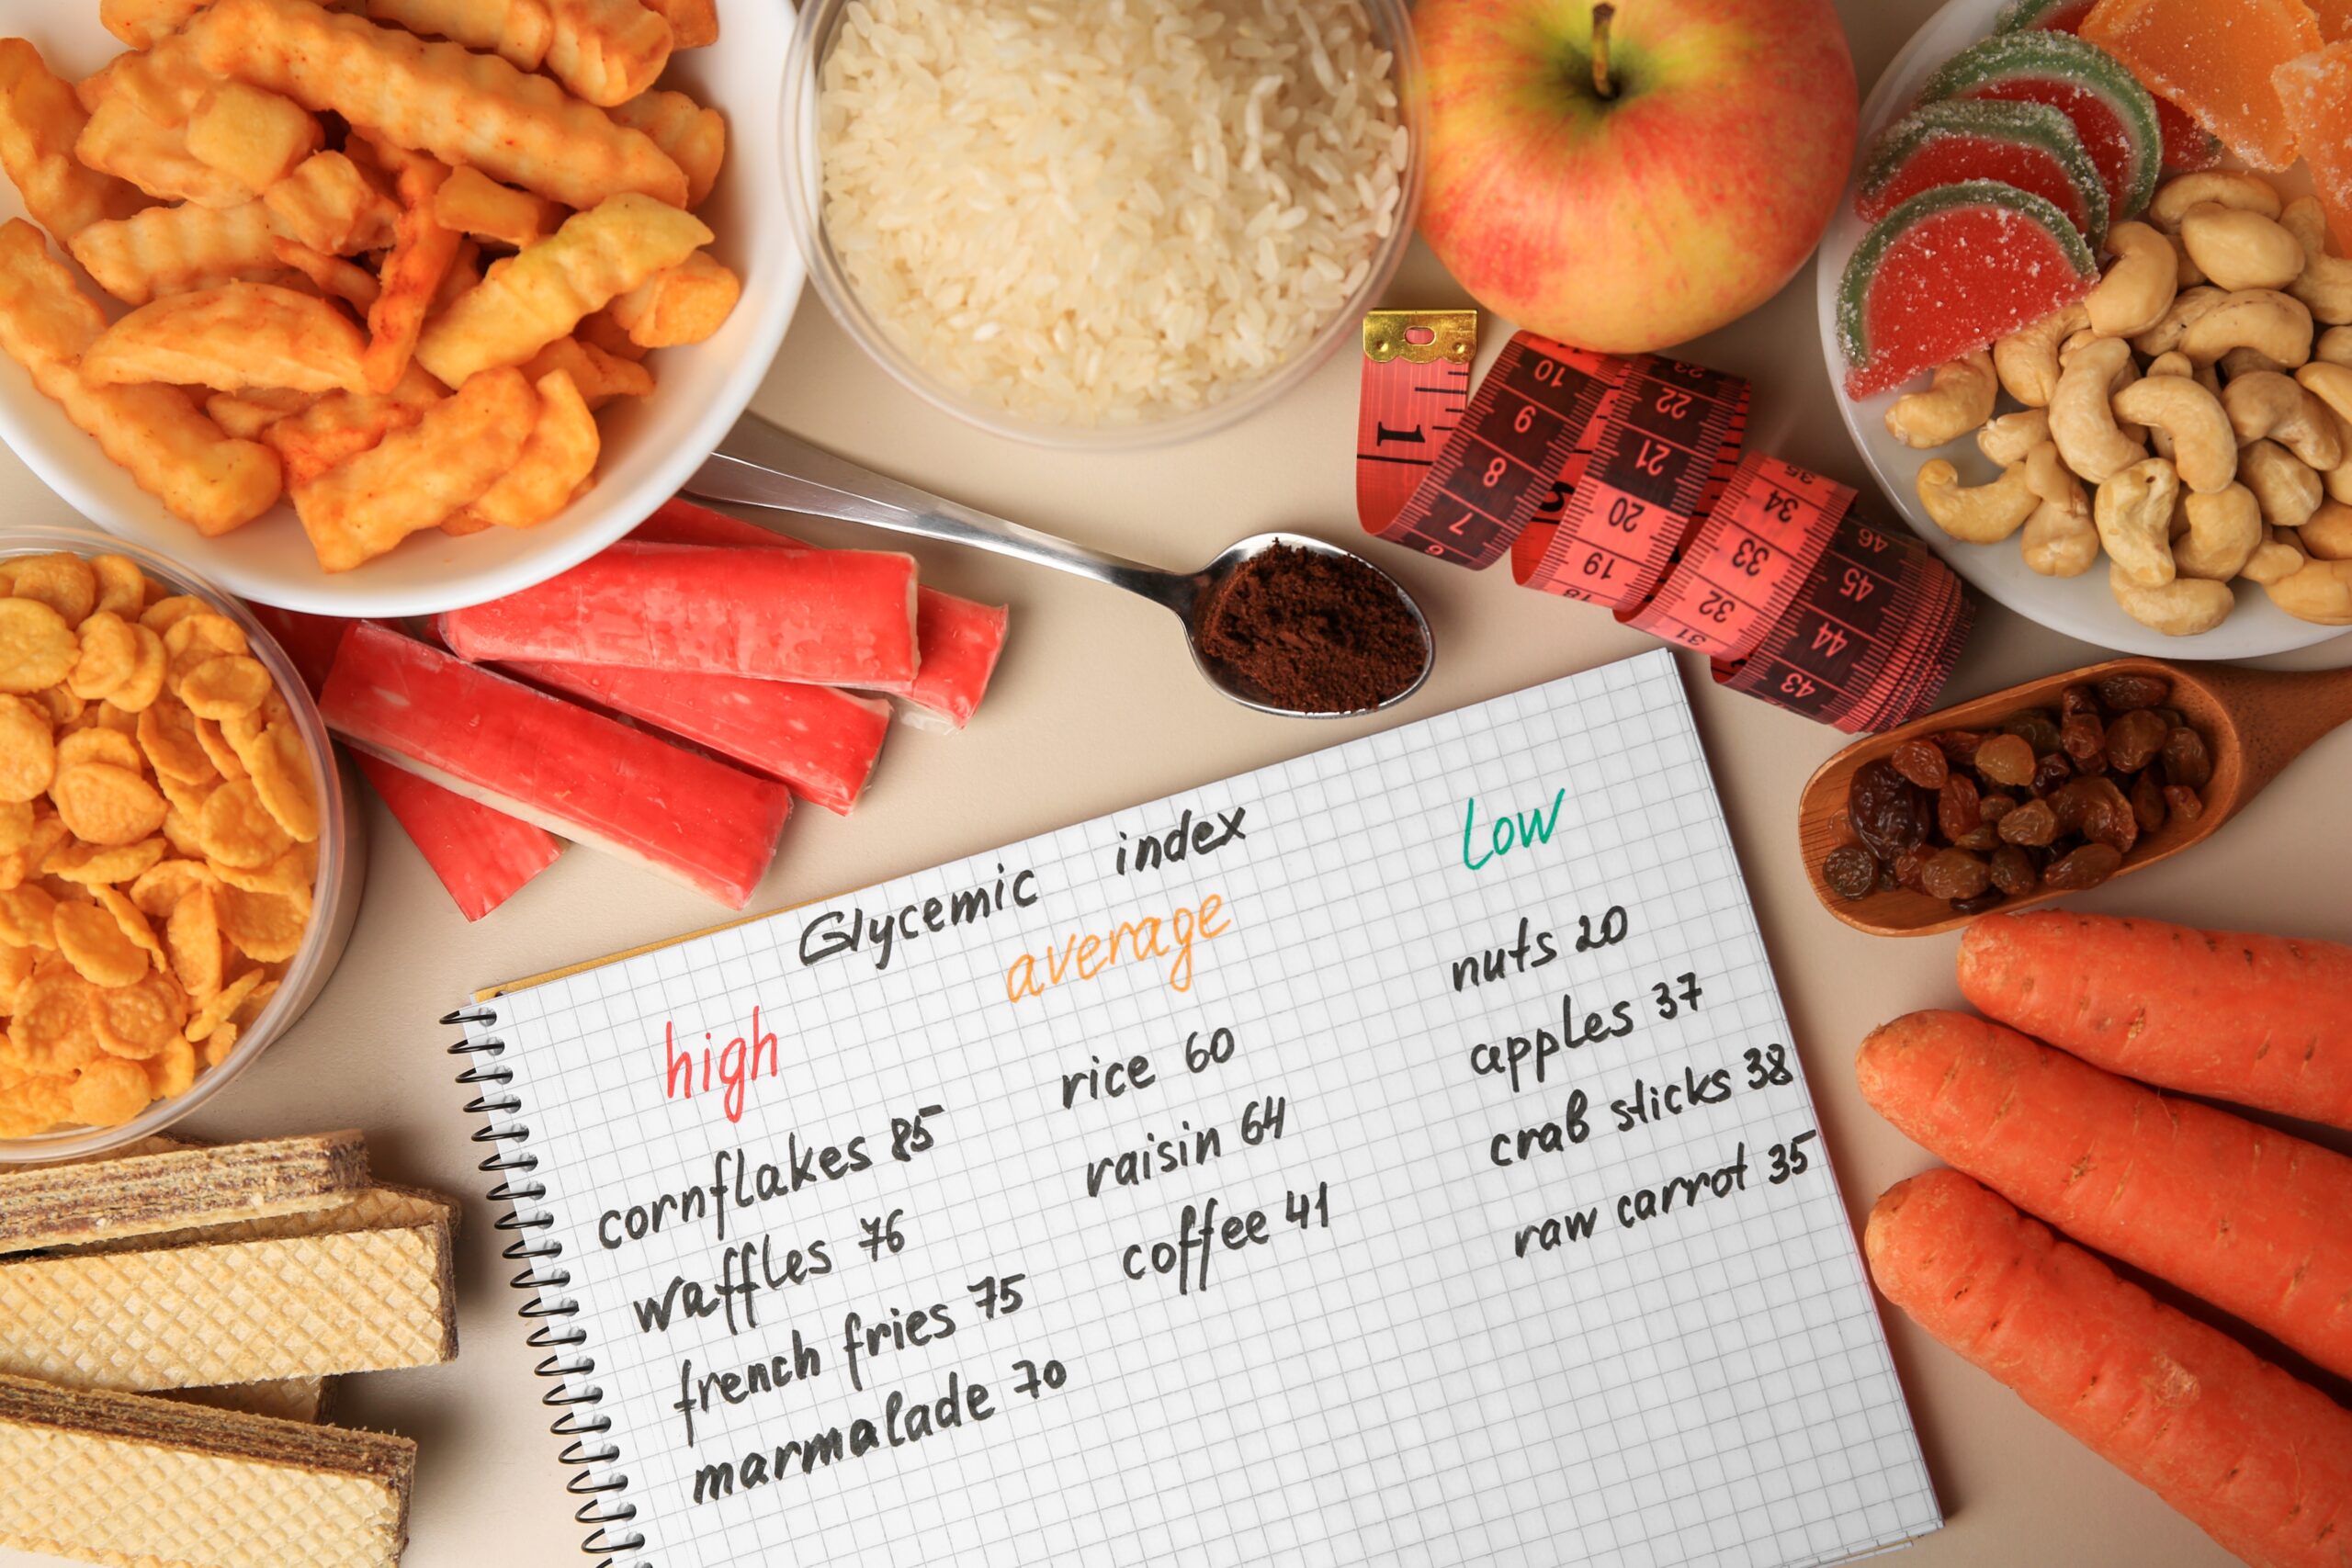 Glycemic index
high
cornflakes 85
waffles 76
french fries 75
marmalade 70
average
rice 60
raisin 64
coffee 41
Low
nuts 20
apples 37
crab sticks 38
raw carrot 35
1
10
9
8
7
6
5
22
21
20
19
18
34
33
32
31
46
45
44
43